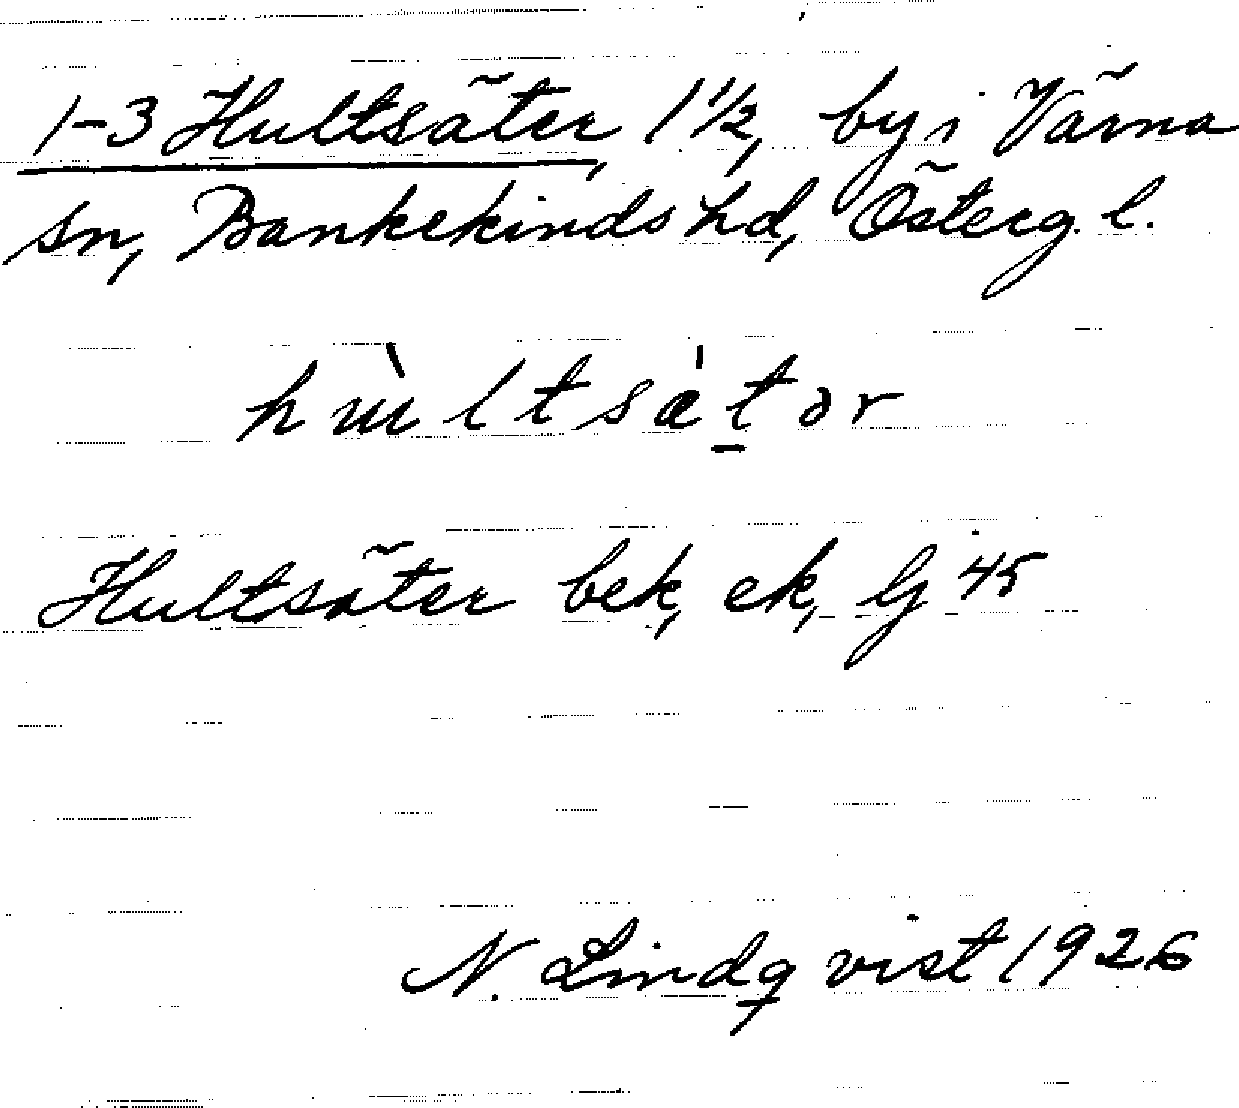 1-3 Hultsäter, 1 1/2, by i Värna
sn, Bankekinds hd, Österg. l.
hɯ̀ltsæ̍t̠ər
Hultsäter bek, ek, Gj 45
N. Lindqvist 1926